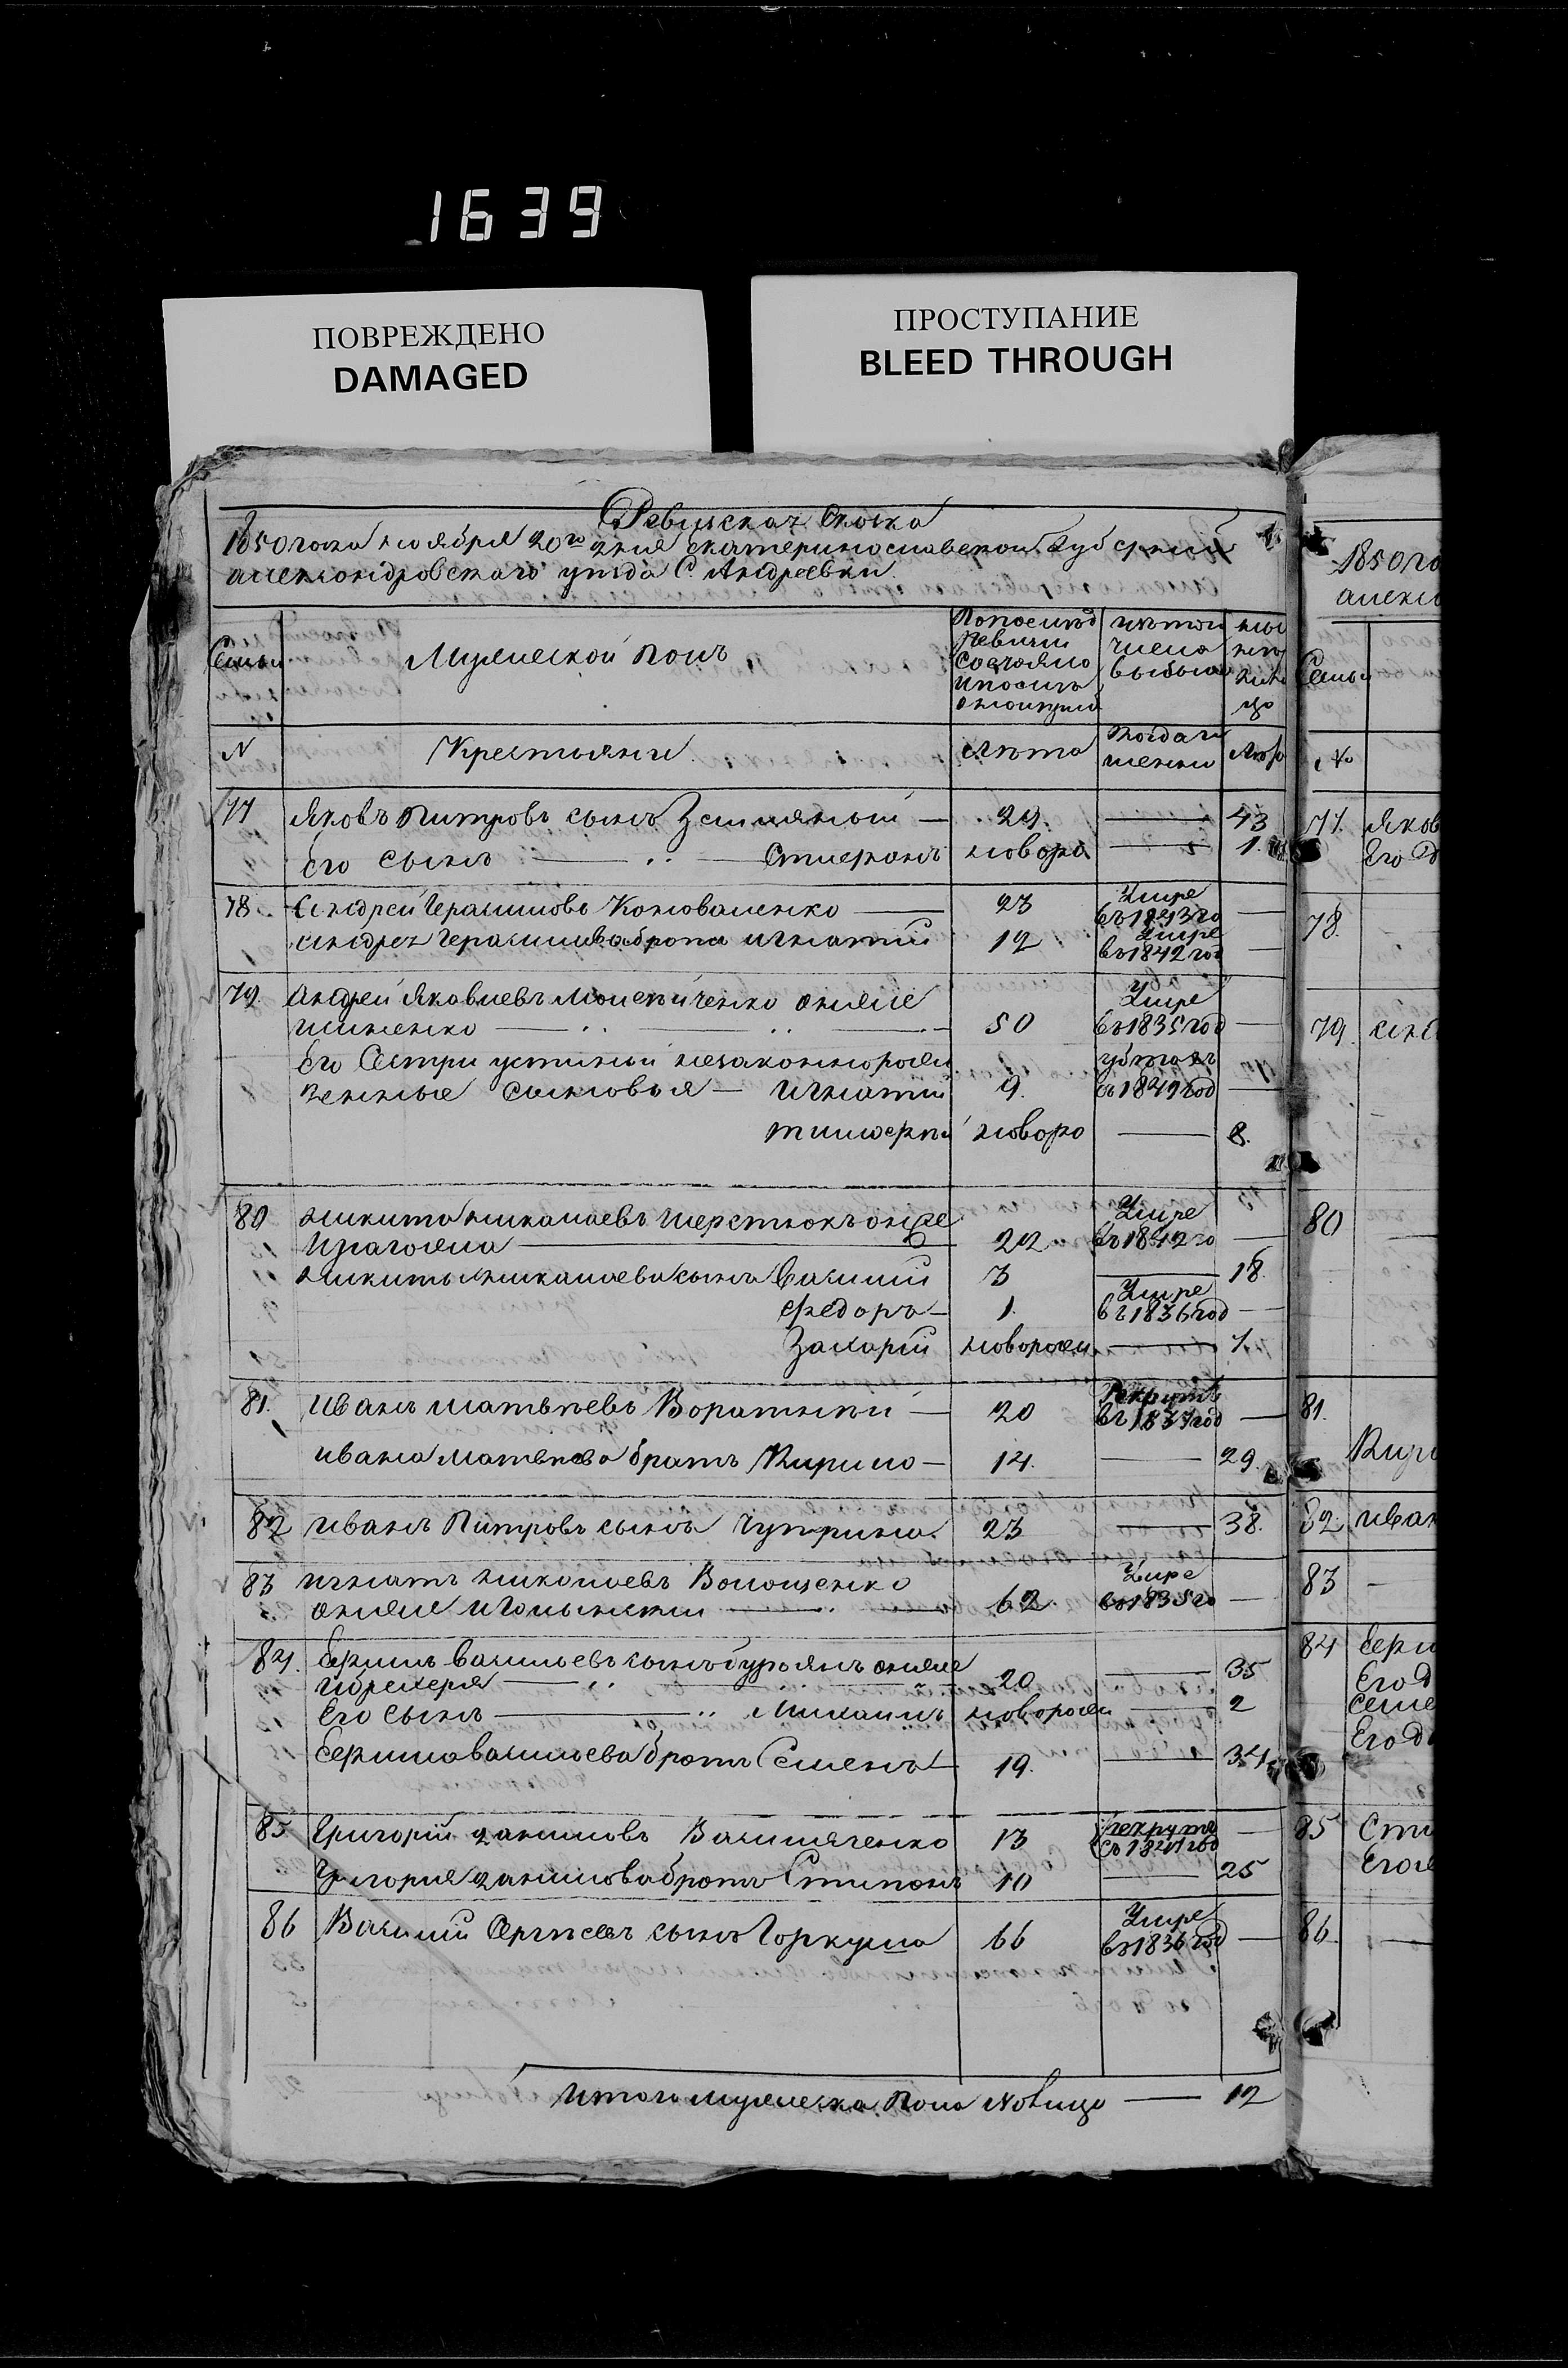 1639
ПОВРЕЖДЕНО
DAMAGED
ПРОСТУПАНИЕ
BLEED THROUGH
Ревизская Скаска
1850 года ноября 20го дня Екатеринославской Губерний
александровскаго уезда С. Андреевки
Семьи
Мужеской полъ
Попоследней
Ревизии
Состояло
Изтого
числа
выбыло
N
Крестьяни
Лета
Когда
именно
Лета
77 Яковъ Питровъ сынъ Земляный — 29. — 43
Его сынъ — Стиеранъ новоро — 1.
78 Андрей Герасимовъ Коноваленко — 23 Умре въ 1843 го —
Андрея Герасимова брата игнатий 12 Умре въ 1842 год —
79. Андрей Яковлевъ онже
50 Умре въ 1835 год —
Его Сестри устиный незаконнорож
денные сыновья — Игнатий 9. въ 1849 год —
тимоерей новоро — 8.
80 никита николаевъ шерстюкъ онже
22 Умре въ 1842 го —
никиты николаева сынъ Василий 3 — 18.
Федоръ — 1. Умре въ 1836 год —
Захарий новорож — 1.
81. Иванъ матвеевъ Воратний — 20 Рекрутъ въ 1837 год —
ивана матвеева братъ Кирило — 14. — 29.
82 иванъ Питровъ сынъ Чуприна. 23 — 38.
83 игнатъ николаевъ Волощенко
онже 62. Умре въ 1835 го —
84. Васильевъ сынъ бурьянъ онже
20 — 35
Его сынъ — Михаилъ новорож — 2
Васильева братъ Семенъ — 19. — 34
85 Григорий данилова Василяченко 13 Рекрутъ въ 1841 год —
Григория данилова братъ Стипанъ 10 — 25
86 Василий Сергеевъ сынъ Горкуша 66 Умре въ 1836 год —
Итого мужеска пола Налицо — 12
1850 го
алекса
Семьи
№
77. Яков
Его д
78.
79.
80
81.
Кири
82. иван
83 —
84
Его д
Семе
Его д
85 Сти
Его ж
86. —